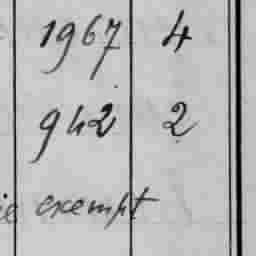 1967 4
942 2
exempt